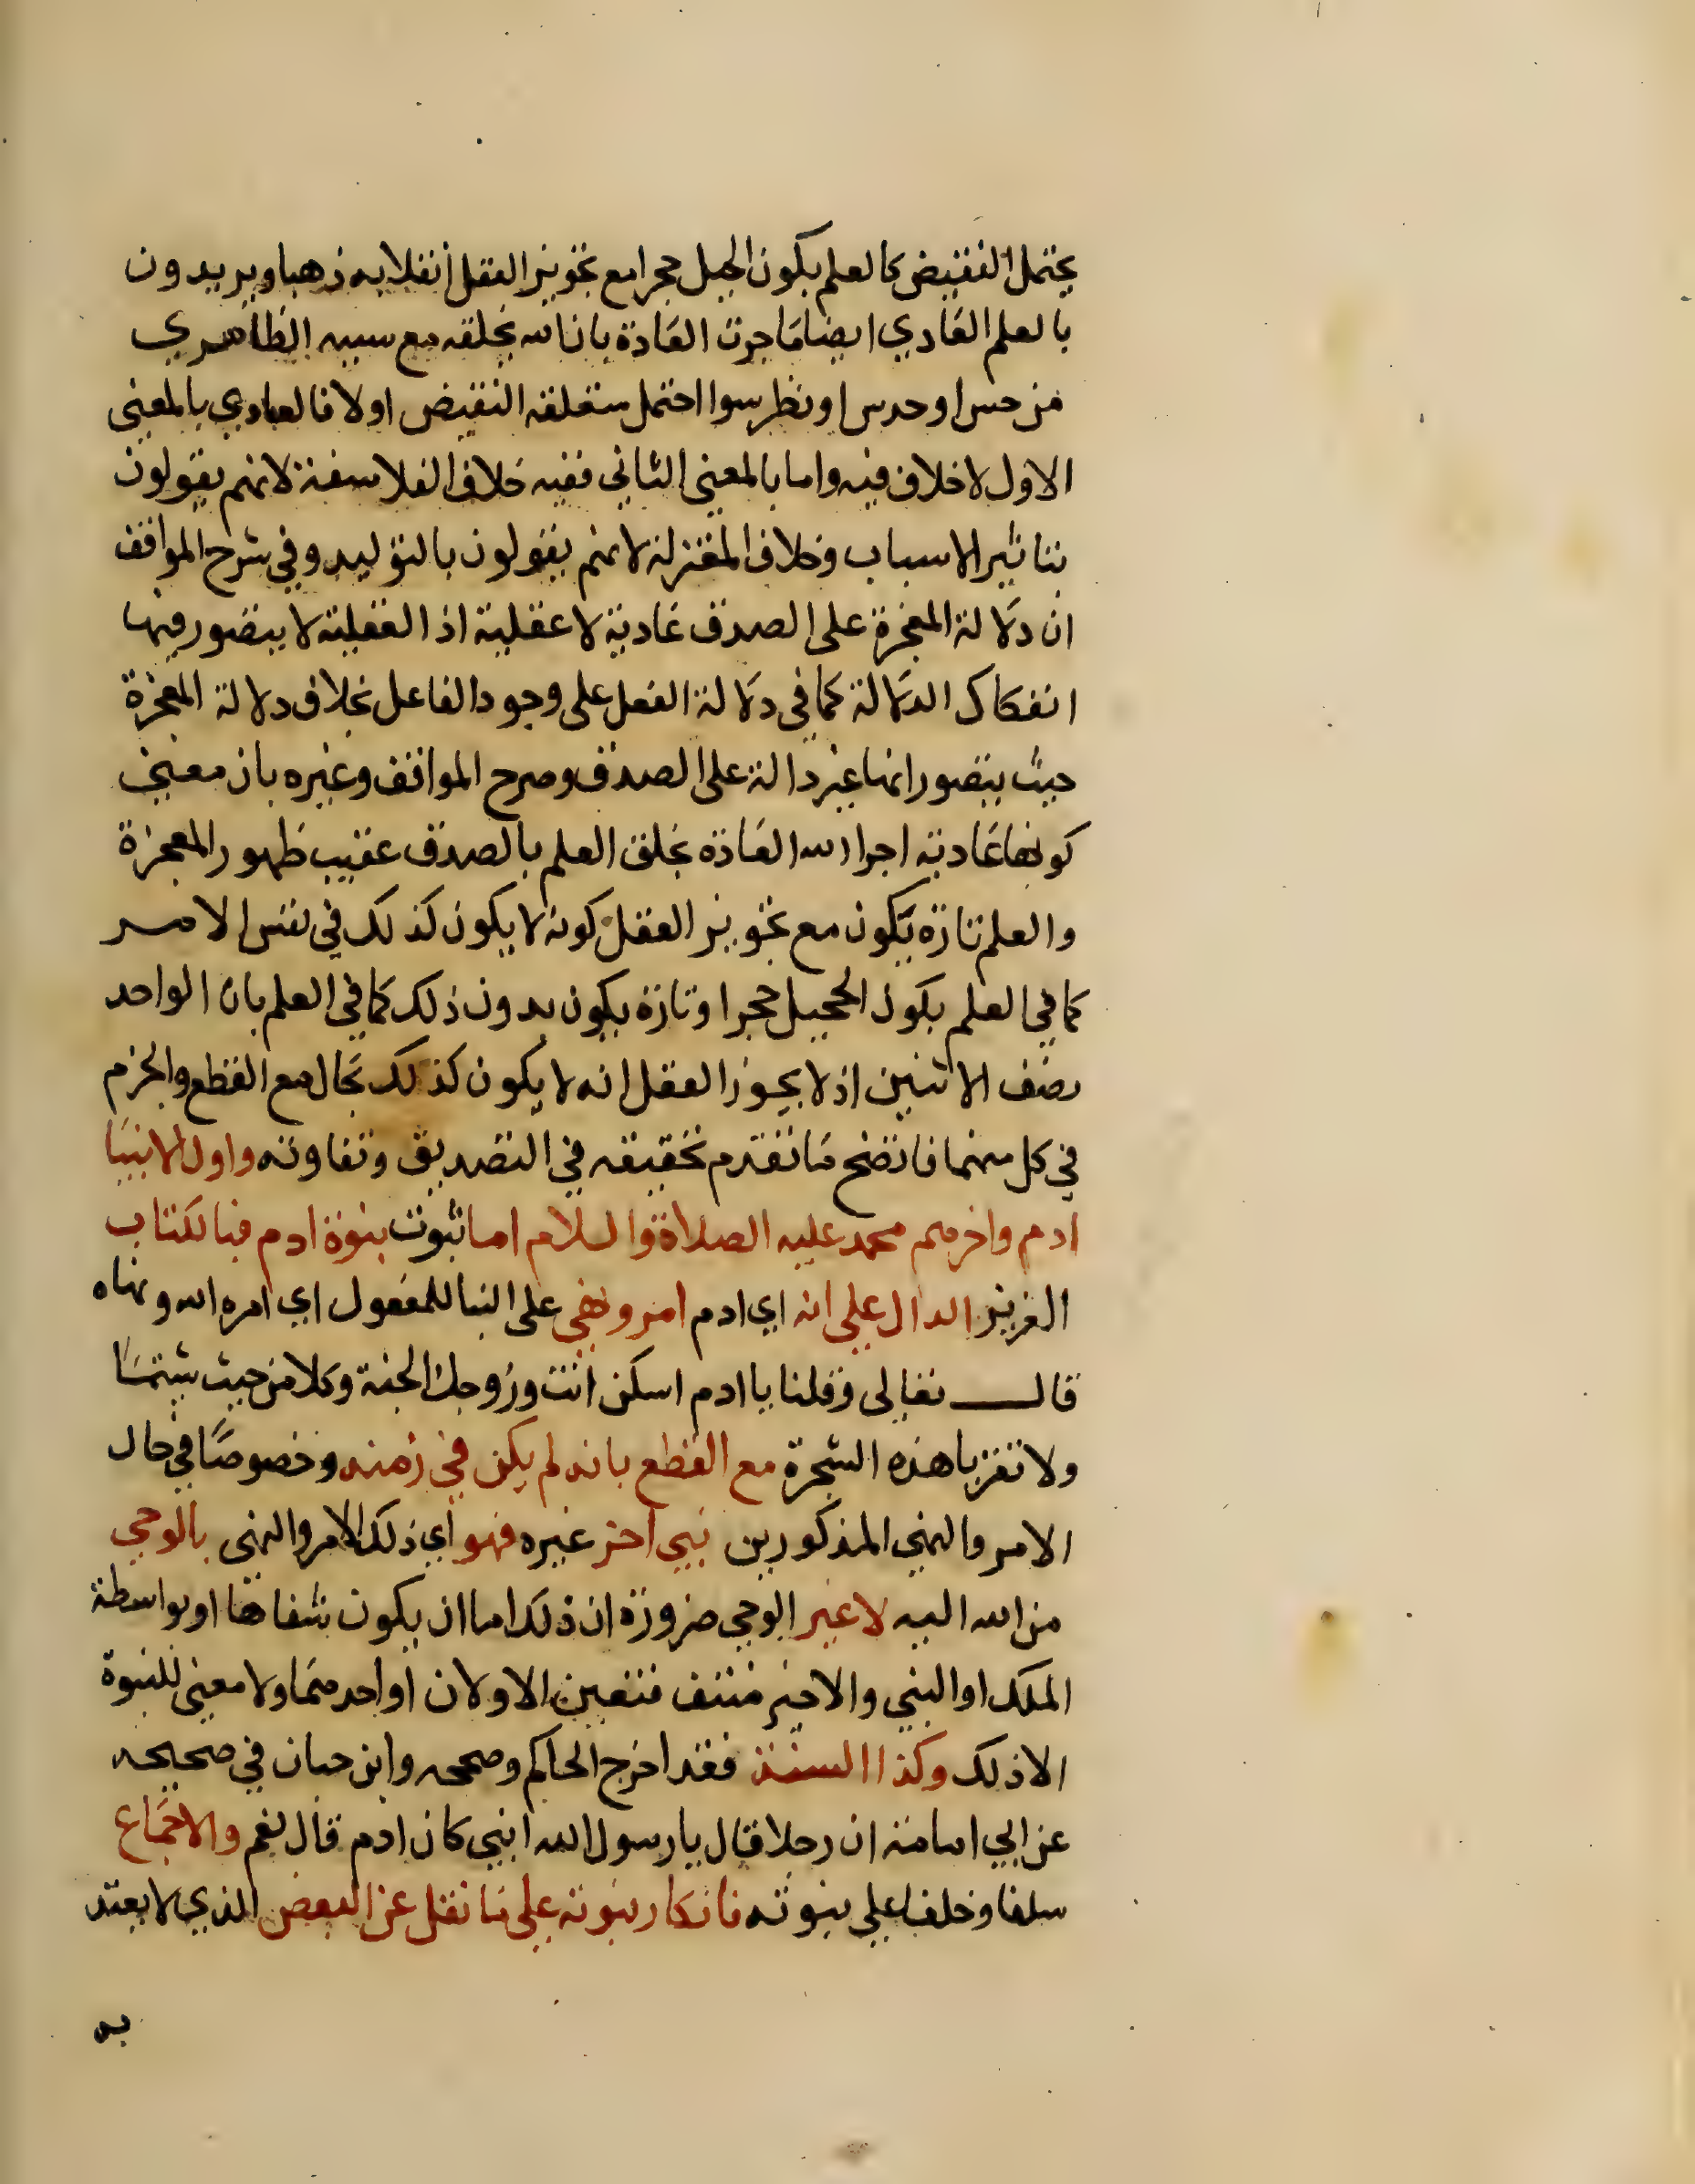 يحتمل النقيض كالعلم بكون الجبل حجرا مع تجويز العقل انقلابه ذهبا ويريدون
بالعلم العادي ايضا ما جرت العادة بان الله يخلقه مع سببه الظاهري
من حس او حدس او نظر سوا احتمل متعلقه النقيض اولا فالعادي بالمعنى
الاول لا خلاف فيه واما بالمعنى الثاني ففيه خلاف الفلاسفة لانهم يقولون
بتاثير الاسباب وخلاف المعتزلة لانهم يقولون بالتوليد وفي شرح المواقف
ان دلالة المعجزة على الصدق عادية لا عقلية اذ العقلية لا يتصور فيها
انفكاك الدلالة كما في دلالة الفعل على وجود الفاعل بخلاف دلالة المعجزة
حيث يتصور انها غير دالة على الصدق وصرح المواقف وغيره بان معنى
كونها عادية اجرا الله العادة بخلق العلم بالصدق عقيب ظهور المعجزة
والعلم تارة يكون مع تجويز العقل كونه لا يكون كذلك في نفس الامر
كما في العلم بكون الجبل حجرا وتارة يكون بدون ذلك كما في العلم بان الواحد
نصف الاثنين اذ لا يجوز العقل انه لا يكون كذلك بحال مع القطع والجزم
في كل منهما فاتضح ما تقدم تحقيقه في التصديق وتفاوته واول الانبيا
ادم واخرهم محمد عليه الصلاة والسلام اما ثبوت بنوة ادم فبالكتاب
العزيز الدال على انه اي ادم امر ونهي على البنا للمفعول اي امره الله ونهاه
قال تعالى وقلنا يا ادم اسكن انت وزوجك الجنة وكلا من حيث شيتما
ولا تقربا هذه الشجرة مع القطع بانه لم يكن في زمنه وخصوصا في حال
الامر والنهي المذكورين نبي اخر غيره فهو اي ذلك الامر والنهي بالوحي
من الله اليه لا غير الوحي ضرورة ان ذلك اما ان يكون شفاها او بواسطة
الملك او النبي والاخير منتف فتعين الاولان او احدهما ولا معنى للنبوة
الا ذلك وكذا السنة فقد اخرج الحاكم وصححه وابن حبان في صحيحه
عن ابي امامة ان رجلا قال يا رسول الله انبي كان ادم قال نعم والاجماع
سلفا وخلفا على نبوته فانكار نبوته على ما نقل عن البعض الذي لا يعتد
به